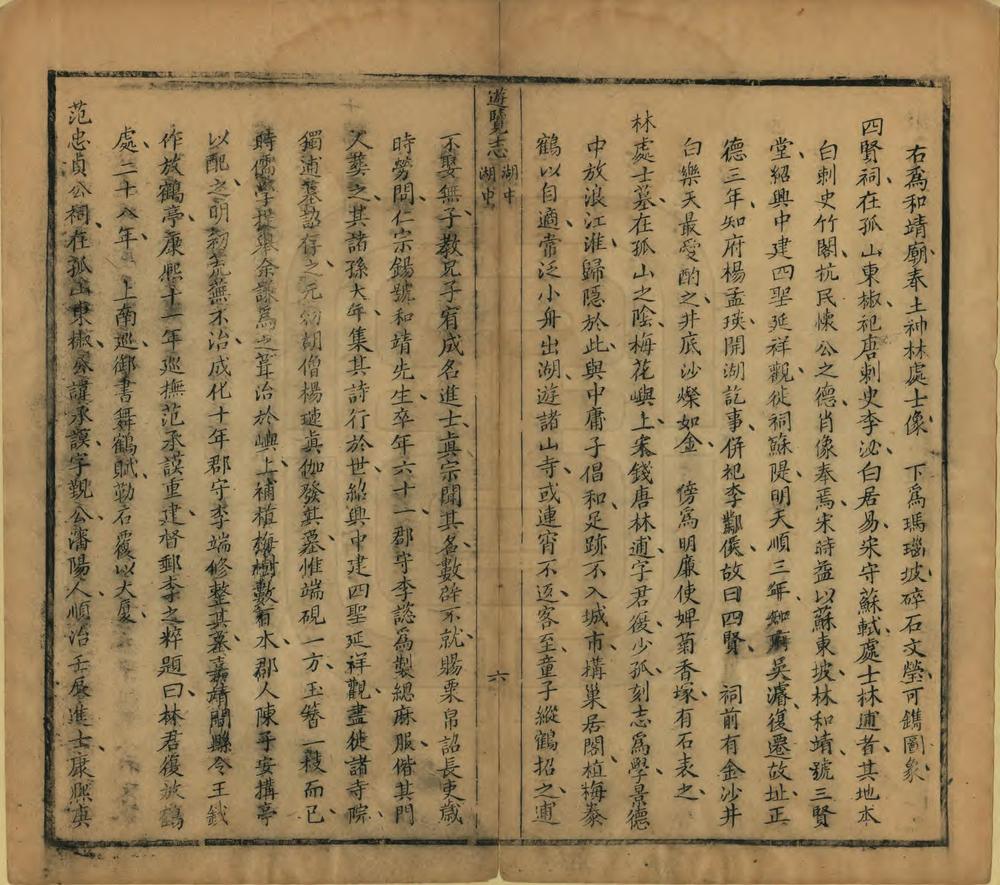 右爲和靖廟奉土神林處士像　下爲瑪瑙坡碎石文瑩可鐫圖象
四賢祠在孤山東椒祀唐刺史李泌白居易宋守蘇軾處士林逋者其地本
白刺史竹閣杭民懷公之德肖像奉焉宋時益以蘇東坡林和靖號三賢
堂紹興中建四聖延祥觀徙祠蘇隄明天順三年知府吳濬復遷故址正
德三年知府楊孟瑛開湖訖事併祀李鄴侯故曰四賢　祠前有金沙井
白樂天最愛酌之井底沙爍如金　傍爲明廉使婢菊香塚有石表之
林處士墓在孤山之陰梅花嶼上宋錢唐林逋字君復少孤刻志爲學景德
中放浪江淮歸隱於此與中庸子倡和足跡不入城市構巢居閣植梅豢
鶴以自適常泛小舟出湖遊諸山寺或連宵不返客至童子縱鶴招之逋
遊覽志
湖中
湖史
六
不娶無子教兄子宥成名進士眞宗聞其名數辟不就賜粟帛詔長吏歲
時勞問仁宗錫號和靖先生卒年六十一郡守李諮爲製緦麻服偕其門
人葬之其諸孫大年集其詩行於世紹興中建四聖延祥觀盡徙諸寺院
獨逋墓詔存之元初胡僧楊璉眞伽發其墓惟端硯一方玉簪一枝而已
時儒學提舉余謙爲之葺治於嶼上補植梅樹數百本郡人陳子安搆亭
以配之明初荒蕪不治成化十年郡守李端修整其墓嘉靖間縣令王釴
作放鶴亭康熙十一年巡撫范承謨重建督郵李之粹題曰林君復放鶴
處二十八年　上南巡御書舞鶴賦勒石覆以大廈
范忠貞公祠在孤山東椒公諱承謨字覲公瀋陽人順治壬辰進士康熙庚